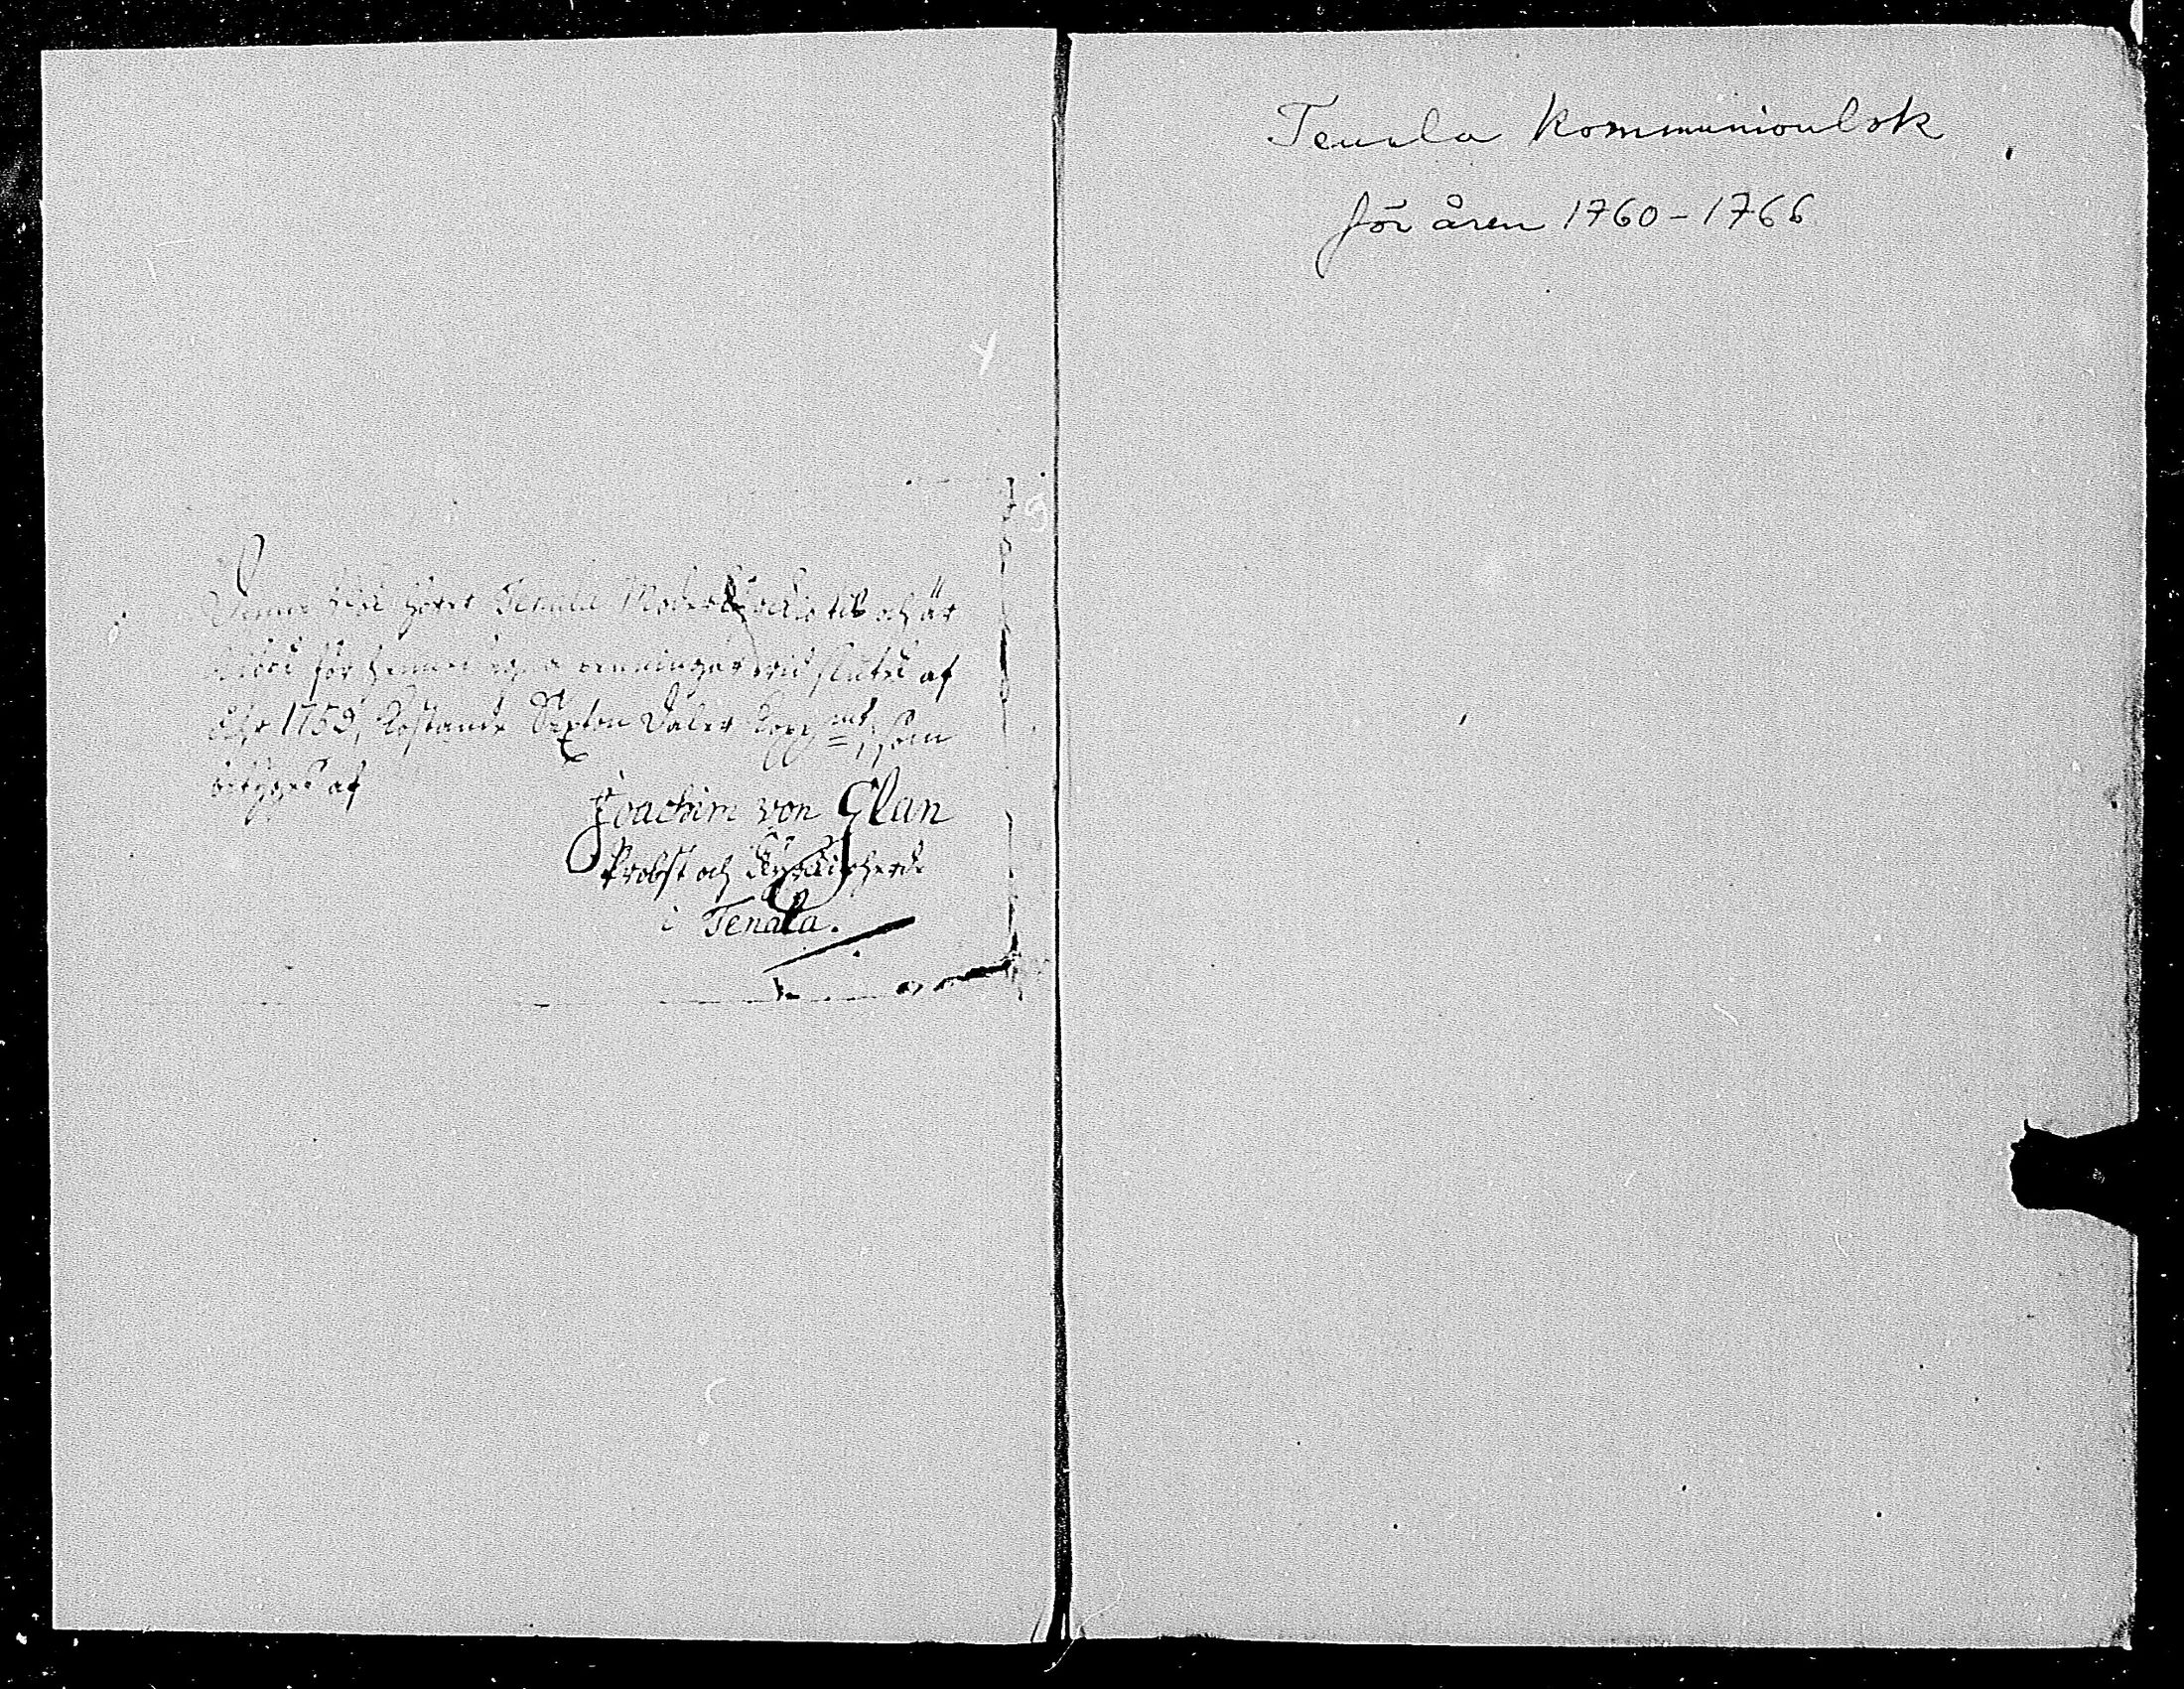 Denna bok hörer Tenala Moder kyrckia til och är
kiöpt för hennes egna penningar vid slutet af
Åhr 1759, kostande Sexton daler Kopp mt, som
betygar af
Joachim von Glan
Probst och Kyrckioherde
i Tenala.
Tenala Kommunionbok
för åren 1760-1766